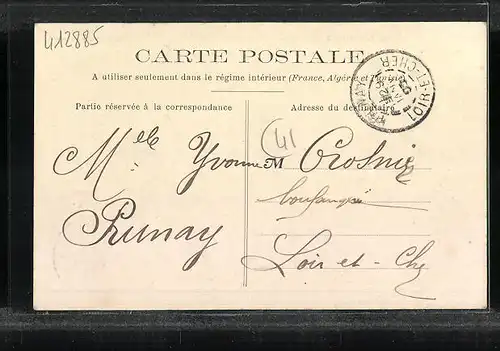 412885
CARTE POSTALE
A utiliser seulement dans le régime intérieur (France, Algérie et Tunisie)
Partie réservée à la correspondance
Adresse du destinataire
LOIR-ET-CHER
41
Melle Yvonne M Crosnier
boulangère
Prunay
Loir-et-Che